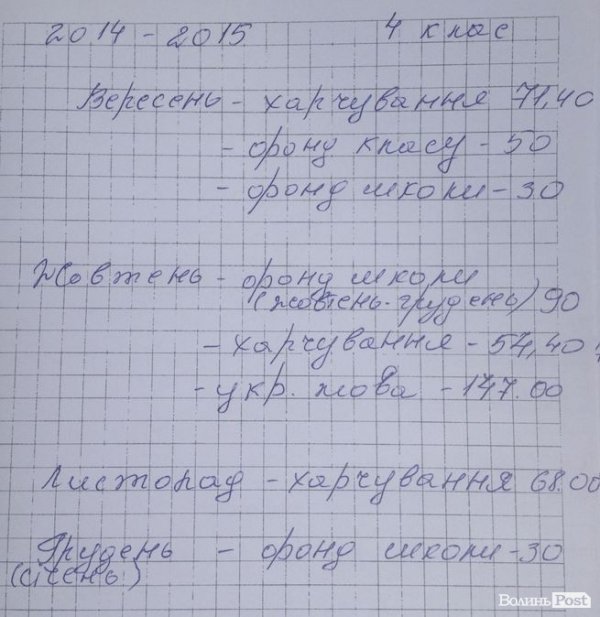 2014 - 2015 4 клас
Вересень - харчування 71,40
- фонд класу - 50
- фонд школи - 30
Жовтень - фонд школи
(жовтень-грудень) 90
- харчування - 54,40
- укр. мова - 147.00
Листопад - харчування 68.00
Грудень - фонд школи - 30
(січень)
ВолиньPost